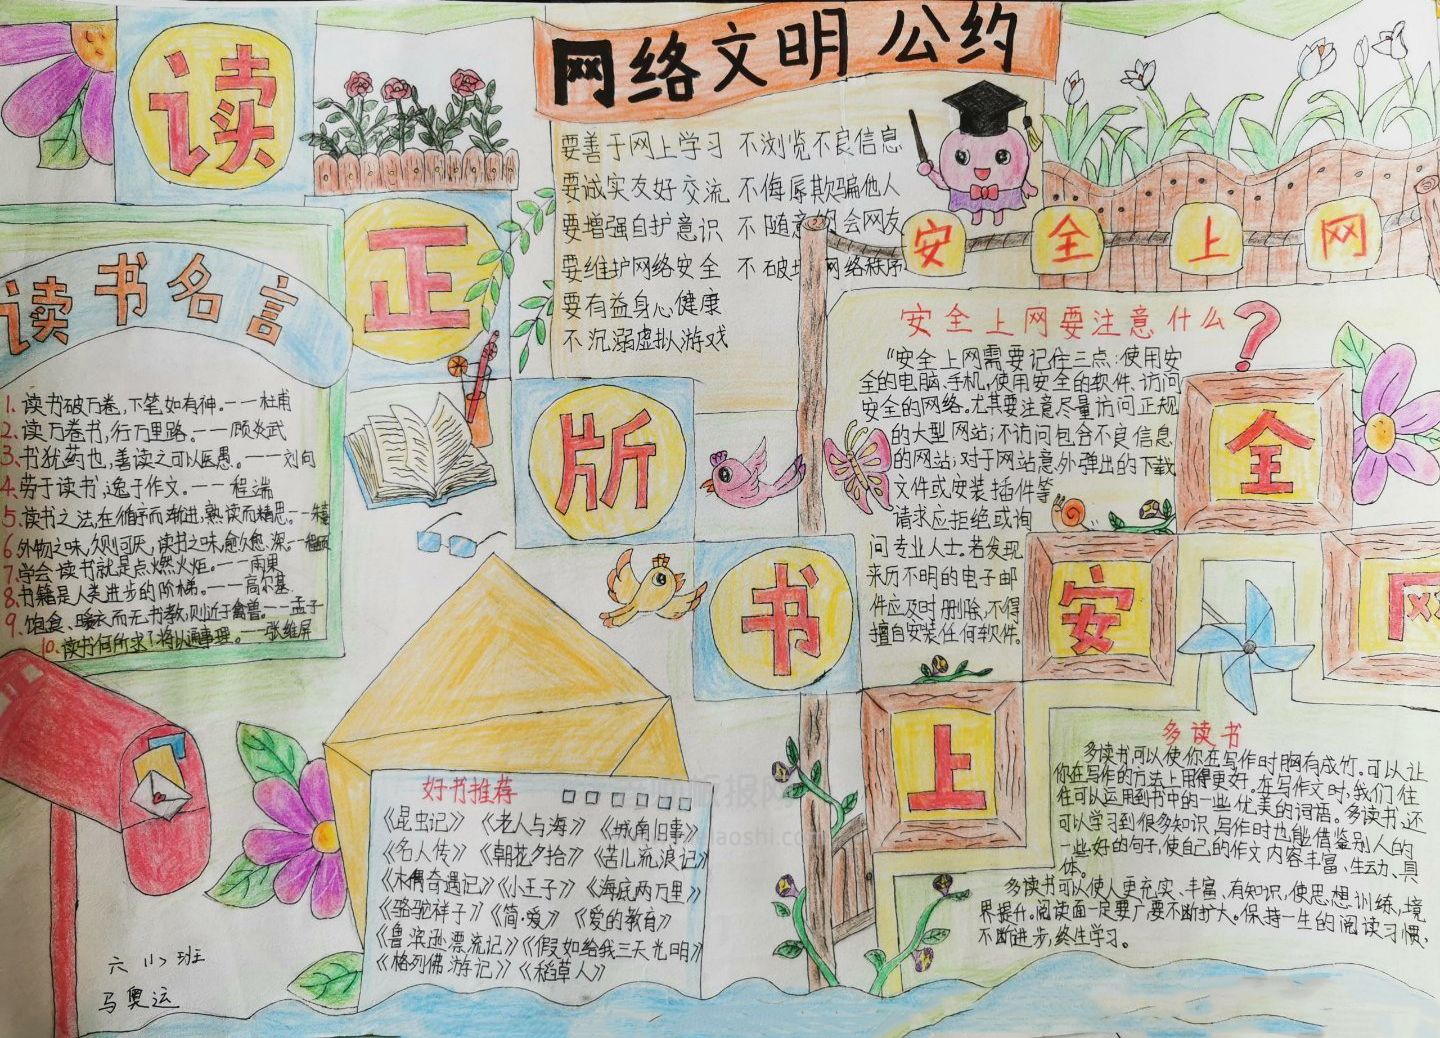 读
正
版
书
网络文明公约
要善于网上学习 不浏览不良信息
要诚实友好交流 不侮辱欺骗他人
要增强自护意识 不随意约会网友
要维护网络安全 不破坏网络秩序
要有益身心健康
不沉溺虚拟游戏
安全上网
读书名言
1.读书破万卷,下笔如有神。——杜甫
2.读万卷书,行万里路。——顾炎武
3.书犹药也,善读之可以医愚。——刘向
4.劳于读书,逸于作文。——程端
5.读书之法,在循序而渐进,熟读而精思。—朱熹
6.外物之味,久则可厌,读书之味,愈久愈深。—程颐
7.学会读书就是点燃火炬。——雨果
8.书籍是人类进步的阶梯。——高尔基
9.饱食、暖衣而无书教,则近于禽兽。——孟子
10.读书何所求?将以通事理。——张维屏
安全上网要注意什么?
"安全上网需要记住三点:使用安
全的电脑、手机,使用安全的软件、访问
安全的网络。尤其要注意尽量访问正规
的大型网站;不访问包含不良信息
的网站;对于网站意外弹出的下载
文件或安装插件等
请求应拒绝或询
问专业人士。若发现
来历不明的电子邮
件应及时删除,不得
擅自安装任何软件。
全
安
网
上
好书推荐
《昆虫记》《老人与海》《城南旧事》
《名人传》《朝花夕拾》《苦儿流浪记》
《木偶奇遇记》《小王子》《海底两万里》
《骆驼祥子》《简·爱》《爱的教育》
《鲁滨逊漂流记》《假如给我三天光明》
《格列佛游记》《稻草人》
多读书
多读书可以使你在写作时胸有成竹。可以让
你在写作的方法上用得更好。在写作文时,我们往
往可以运用到书中的一些优美的词语。多读书,还
可以学习到很多知识,写作时也能借鉴别人的
一些好的句子,使自己的作文内容丰富、生动、具
体。
多读书可以使人更充实、丰富、有知识,使思想训练,境
界提升。阅读面一定要广,要不断扩大。保持一生的阅读习惯,
不断进步,终生学习。
六(1)班
马奥运